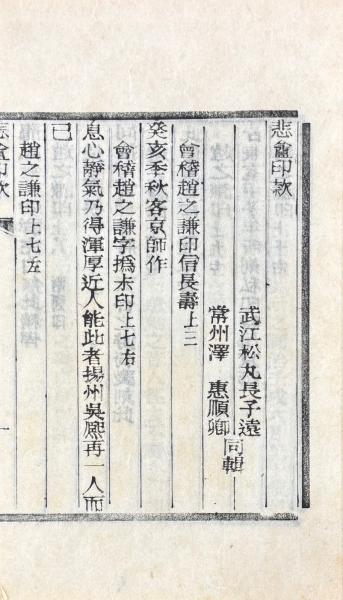 悲盦印款
武江松丸長子遠
常州澤 惠順卿 同輯
會稽趙之謙印信長壽上三
癸亥季秋客京師作
會稽趙之謙字撝未印上七右
息心靜氣乃得渾厚近人能此者揚州吳熈再一人而
已
趙之謙印上七五
悲盦印款